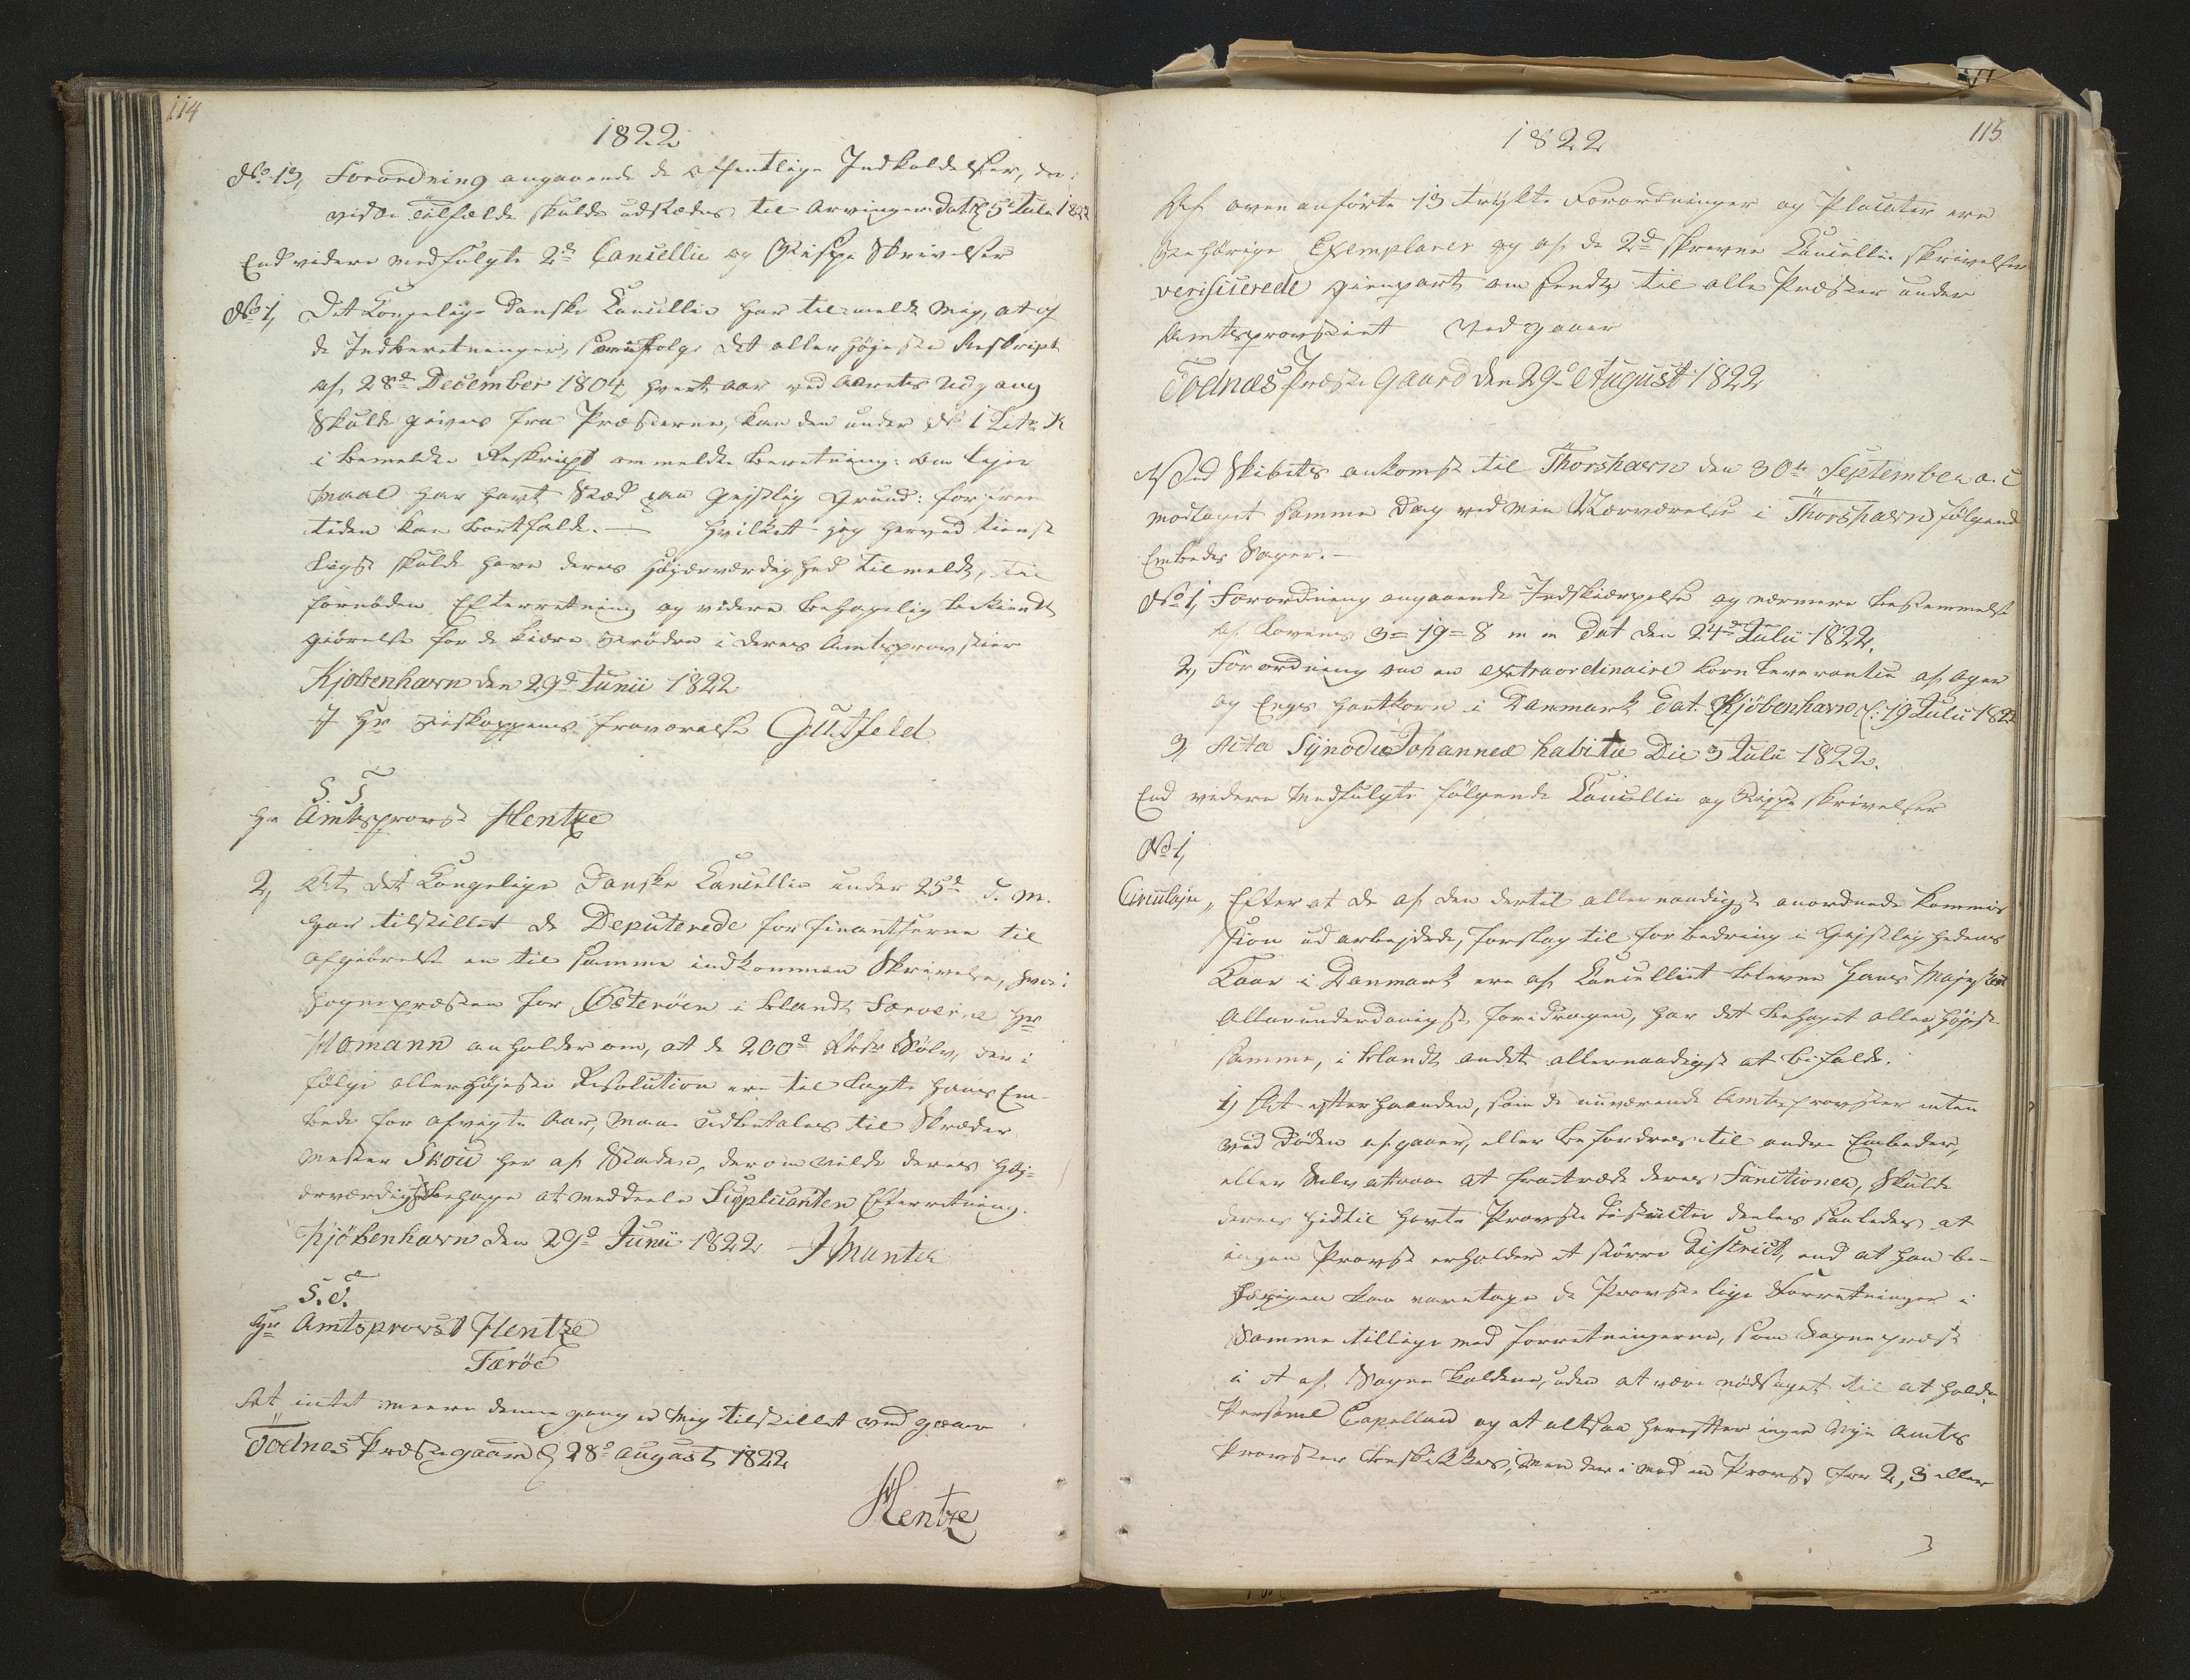 114
1822
No 13, Forordning angaaende de offentlige Indkaldelser, der i
visse Tilfælde skulde udstædes til Arvinger Dat: 5 Julii 1822
End videre medfulgte 2de Cancellie og Bispe Skrivelser
No 1, Det Kongelige Danske Cancellie har tilmeldt mig, at af
de Indberetninger, som ifølge det allerhøjeste Reskript
af 28d December 1804 hvert Aar ved Aarets Udgang
skulde gives fra Præsterne, kan den under No 1 Litr K
i bemeldte Reskript ommeldte Beretning: om Lejer
maal har havt Stæd paa Gejstlig Grund: for frem
tiden kan bortfalde. — Hvilket jeg herved tienst
ligst skulde have deres Højærværdighed tilmeldt, til
fornøden Efterretning og videre behagelig bekiendt
giørelse for de kiære Brødre i deres Amtsprovstier
Kjøbenhavn den 29d Junii 1822
I Hr Biskoppens fraværelse Gutfeld
S. T
Hr Amtsprovst Hentze
2, At det Kongelige Danske Cancellie under 25d d. M.
har tilstillet de Deputerede for Finantserne til
afgiørelse en til samme indkommen Skrivelse, hvori
Sognepræsten for Østeröen i blandt Færöerne Hr
Hamann anholder om, at de 200d Rbdr Sølv, der i
følge allerhøjeste Resolution ere tillagte hans Em-
bede for afvigte Aar, maae udbetales til Skræder
mester Skou her af Staden, derom vilde deres Høj-
ærværdighed behage at meddeele Supplicanten Efterretning.
Kjøbenhavn den 29d Junii 1822 F Münter
S. T.
Hr Amtsprovst Hentze
Færöe
At intet meere denne gang er mig tilstillet ved gaaer
Todnæs Præstegaard d 28d August 1822
Hentze
115
1822
Af ovenanførte 13 trykte Forordninger og Placater ere
behørige Exemplarer og af de 2de skrevne Cancellie skrivelser
verificerede Gienpart omsendt til alle Præster under
Amtsprovstiet Ved gaaer
Todnæs Præste Gaard den 29d August 1822
Ved Skibets ankomst til Thorshavn den 30te September a. c
modtaget samme Dag ved min Nærværelse i Thorshavn følgende
Embeds Sager. —
No 1, Forordning angaaende Indskiærpelse og nærmere bestemmelse
af Lovens 3=19=8 m m Dat den 24de Julii 1822,
2, Forordning om en extraordinaire Korn Leverantie af Ager
og Engs Hartkorn i Danmark Dat. Kjøbenhavn d: 19 Julii 1822
3, Acta Synodi Johanneæ habitæ Die 3 Julii 1822.
End videre medfulgte følgende Cancellie og Bispe skrivelser
No 1,
Circulaire, Efter at de af den dertil allernaadigst anordnede Kommis
sion udarbejdede, forslag til forbedring i Gejstlighedens
Kaar i Danmark ere af Cancelliet blevne Hans Majestæt
Allerunderdanigst foredragen, har det behaget allerhøjst
samme, i blandt andet allernaadigst at bifalde.
1, At efterhaanden, som de nuværende Amtsprovster enten
ved Døden afgaaer, eller befordres til andre Embeder,
eller selv attraae at fratræde deres Functioner, skulde
deres hidtil havte Provste districter deeles saaledes at
ingen Provst erholder et større District, end at han be-
hørigen kan varetage de Provstelige Forretninger i
samme tillige med forretningerne, som Sognepræst
i et af Sogne kaldene, uden at være nødsaget til at holde
Personel Capellan og at altsaa herefter ingen nye Amts
Provster beskikkes, men der i mod en Provst for 2, 3 eller